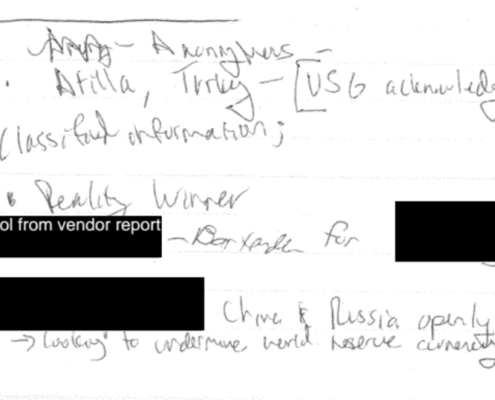 - Anonymous -
· Atilla, Turkey - [USG acknowledg
Classified information;
Reality Winner
ol from vendor report
- for
China & Russia openly
→ looking to undermine world reserve currency